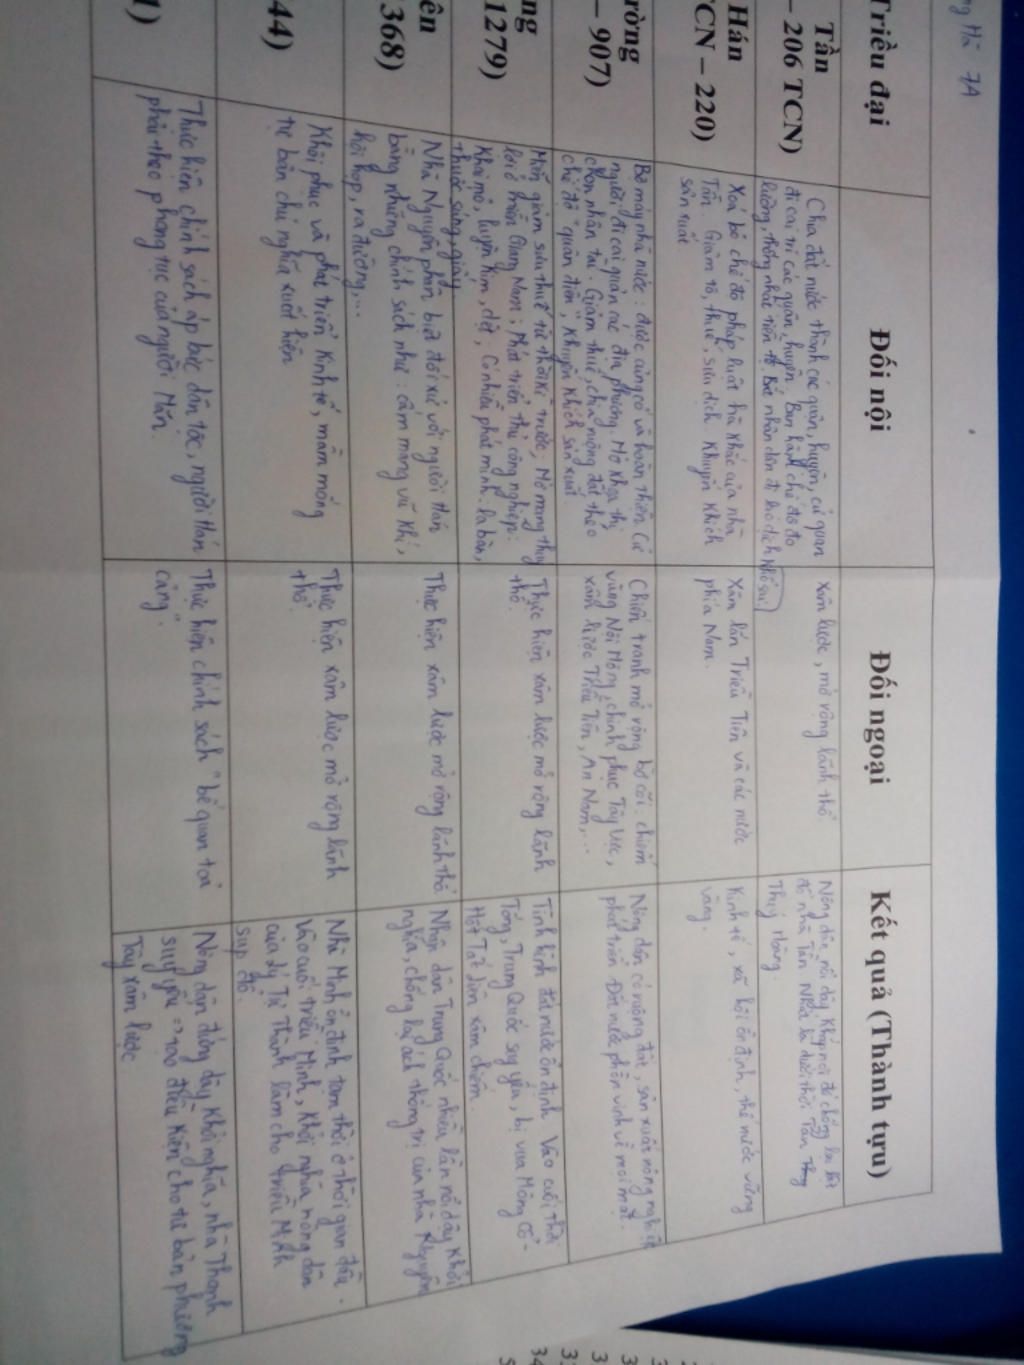 ng Hà 7A
Triều đại
Đối nội
Đối ngoại
Kết quả (Thành tựu)
Tần
– 206 TCN)
Chia đất nước thành các quận, huyện, cử quan
đi cai trị các quận, huyện. Ban hành chế độ đo
lường, thống nhất tiền tệ. Bắt nhân dân đi lao dịch
Xâm lược, mở rộng lãnh thổ
Nông dân nổi dậy khắp nơi để chống lại
đổ nhà Tần. Nhà dưới thời Tần
Thuỷ Hoàng.
Hán
TCN – 220)
Xoá bỏ chế độ pháp luật hà khắc của nhà
Tần. Giảm tô, thuế, sưu dịch. Khuyến khích
sản xuất.
Xâm lấn Triều Tiên và các nước
phía Nam.
Kinh tế, xã hội ổn định, thế nước vững
vàng.
ường
– 907)
Bộ máy nhà nước: được củng cố và hoàn thiện. Cử
người đi cai quản các địa phương. Mở khoa thi
chọn nhân tài. Giảm thuế, chia ruộng đất theo
chế độ quân điền, khuyến khích sản xuất.
Chiến tranh mở rộng bờ cõi: chiếm
vùng Nội Mông, chinh phục Tây Vực,
xâm lược Triều Tiên, An Nam,...
Nông dân có ruộng đất, sản xuất nông nghiệp
phát triển. Đất nước phồn vinh về mọi mặt.
ng
1279)
Miễn giảm sưu thuế từ thời kì trước, Mở mang thuỷ
lợi ở miền Giang Nam; Phát triển thủ công nghiệp:
Khai mỏ, luyện kim, dệt,. Có nhiều phát minh: la bàn,
thuốc súng, giấy
Thực hiện xâm lược mở rộng lãnh
thổ.
Tình hình đất nước ổn định. Vào cuối thời
Tống, Trung Quốc suy yếu, bị vua Mông Cổ -
Hốt Tất Liệt xâm chiếm.
ên
1368)
Nhà Nguyên phân biệt đối xử với người Hán
bằng những chính sách như: cấm mang vũ khí,
hội họp, ra đường,...
Thực hiện xâm lược mở rộng lãnh thổ
Nhân dân Trung Quốc nhiều lần nổi dậy khởi
nghĩa, chống lại ách thống trị của nhà Nguyên
44)
Khôi phục và phát triển kinh tế, mầm mống
tư bản chủ nghĩa xuất hiện
Thực hiện xâm lược mở rộng lãnh
thổ.
Nhà Minh ổn định tạm thời ở thời gian đầu.
Vào cuối triều Minh, khởi nghĩa nông dân
của Lý Tự Thành làm cho triều Minh
sụp đổ.
1)
Thực hiện chính sách áp bức dân tộc, người Hán
phải theo phong tục của người Mãn.
Thực hiện chính sách "bế quan toả
cảng".
Nông dân đứng dậy khởi nghĩa, nhà Thanh
suy yếu => tạo điều kiện cho tư bản phương
Tây xâm lược